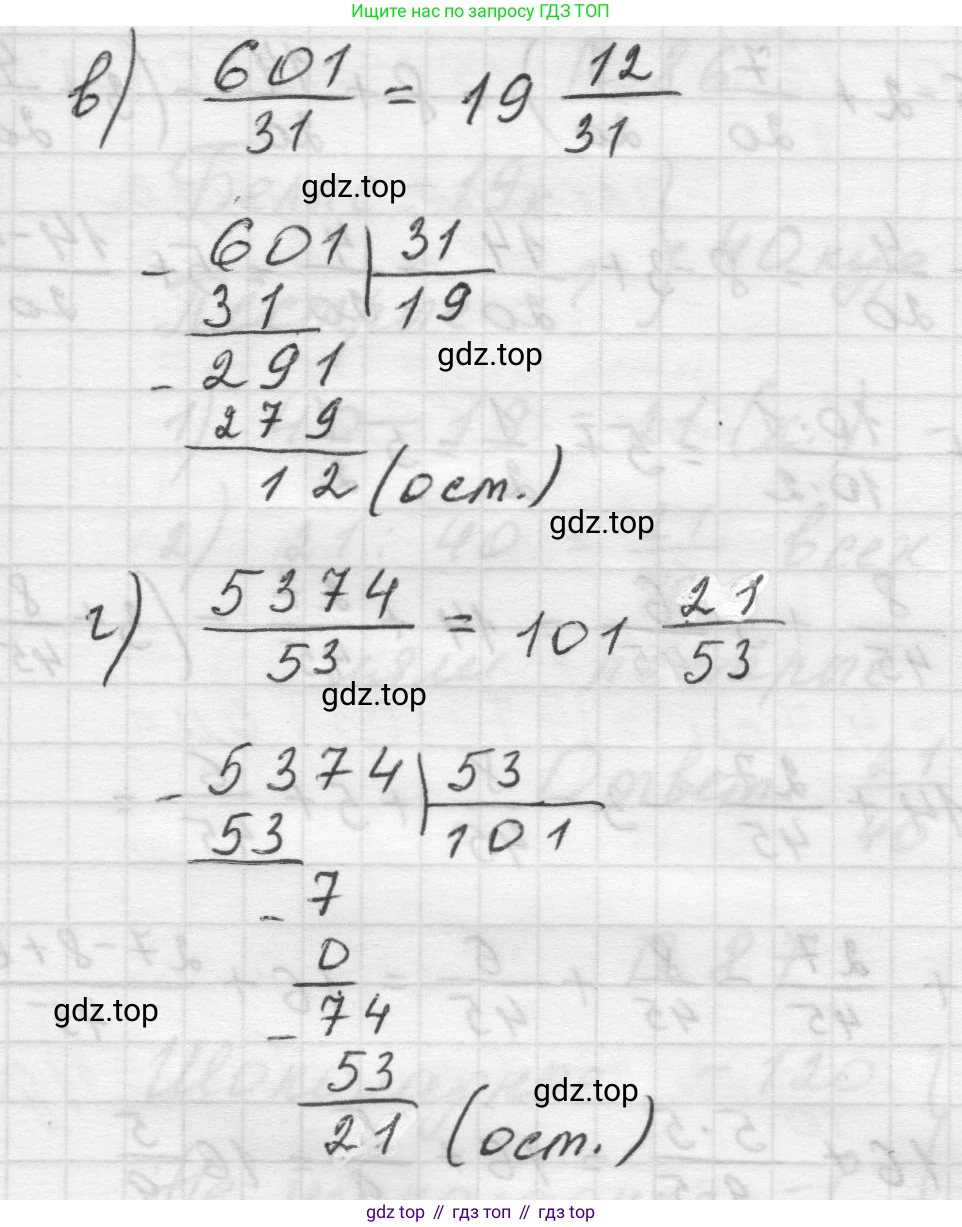 Ищите нас по запросу ГДЗ ТОП
в) 601/31 = 19 12/31
gdz.top
- 601 | 31
31 | 19
gdz.top
- 291
279
12 (ост.)
gdz.top
г) 5374/53 = 101 21/53
gdz.top
- 5374 | 53
53 | 101
- 7
0
gdz.top
- 74
53
gdz.top
21 (ост.)
gdz top // гдз топ // gdz top